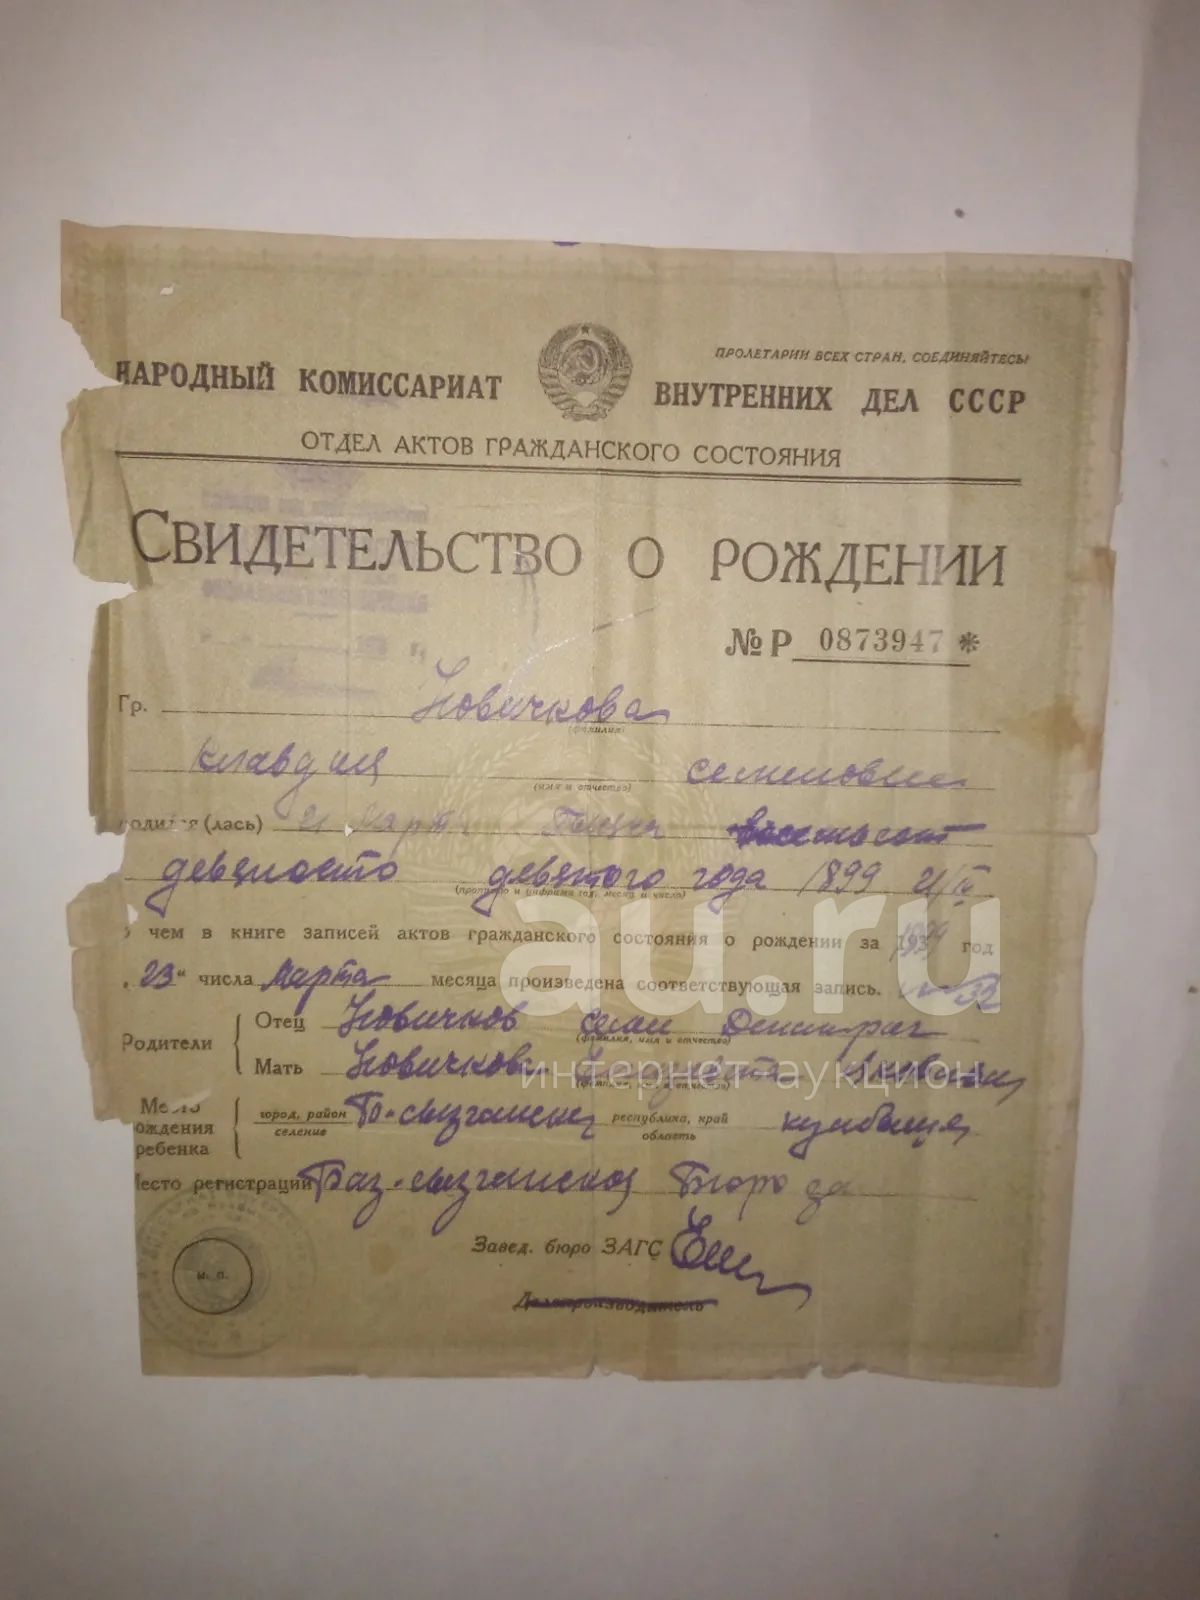 ПРОЛЕТАРИИ ВСЕХ СТРАН, СОЕДИНЯЙТЕСЬ!
НАРОДНЫЙ КОМИССАРИАТ ВНУТРЕННИХ ДЕЛ СССР
ОТДЕЛ АКТОВ ГРАЖДАНСКОГО СОСТОЯНИЯ
СВИДЕТЕЛЬСТВО О РОЖДЕНИИ
№ Р 0873947 *
Гр. Новичкова
(фамилия)
Клавдия
(имя и отчество)
родился (лась) 21 Марта восемьсот
девяносто девятого года 1899 21/IV
(прописью и цифрами год, месяц и число)
о чем в книге записей актов гражданского состояния о рождении за 1899 год
„23" числа Марта месяца произведена соответствующая запись. 32
Родители
Отец Новичков
(фамилия, имя и отчество)
Мать Новичкова
(фамилия, имя и отчество)
Место рождения ребенка
город, район
селение
республика, край
область
Место регистрации Бюро
Завед. бюро ЗАГС
Делопроизводитель
М. П.
au.ru
интернет-аукцион